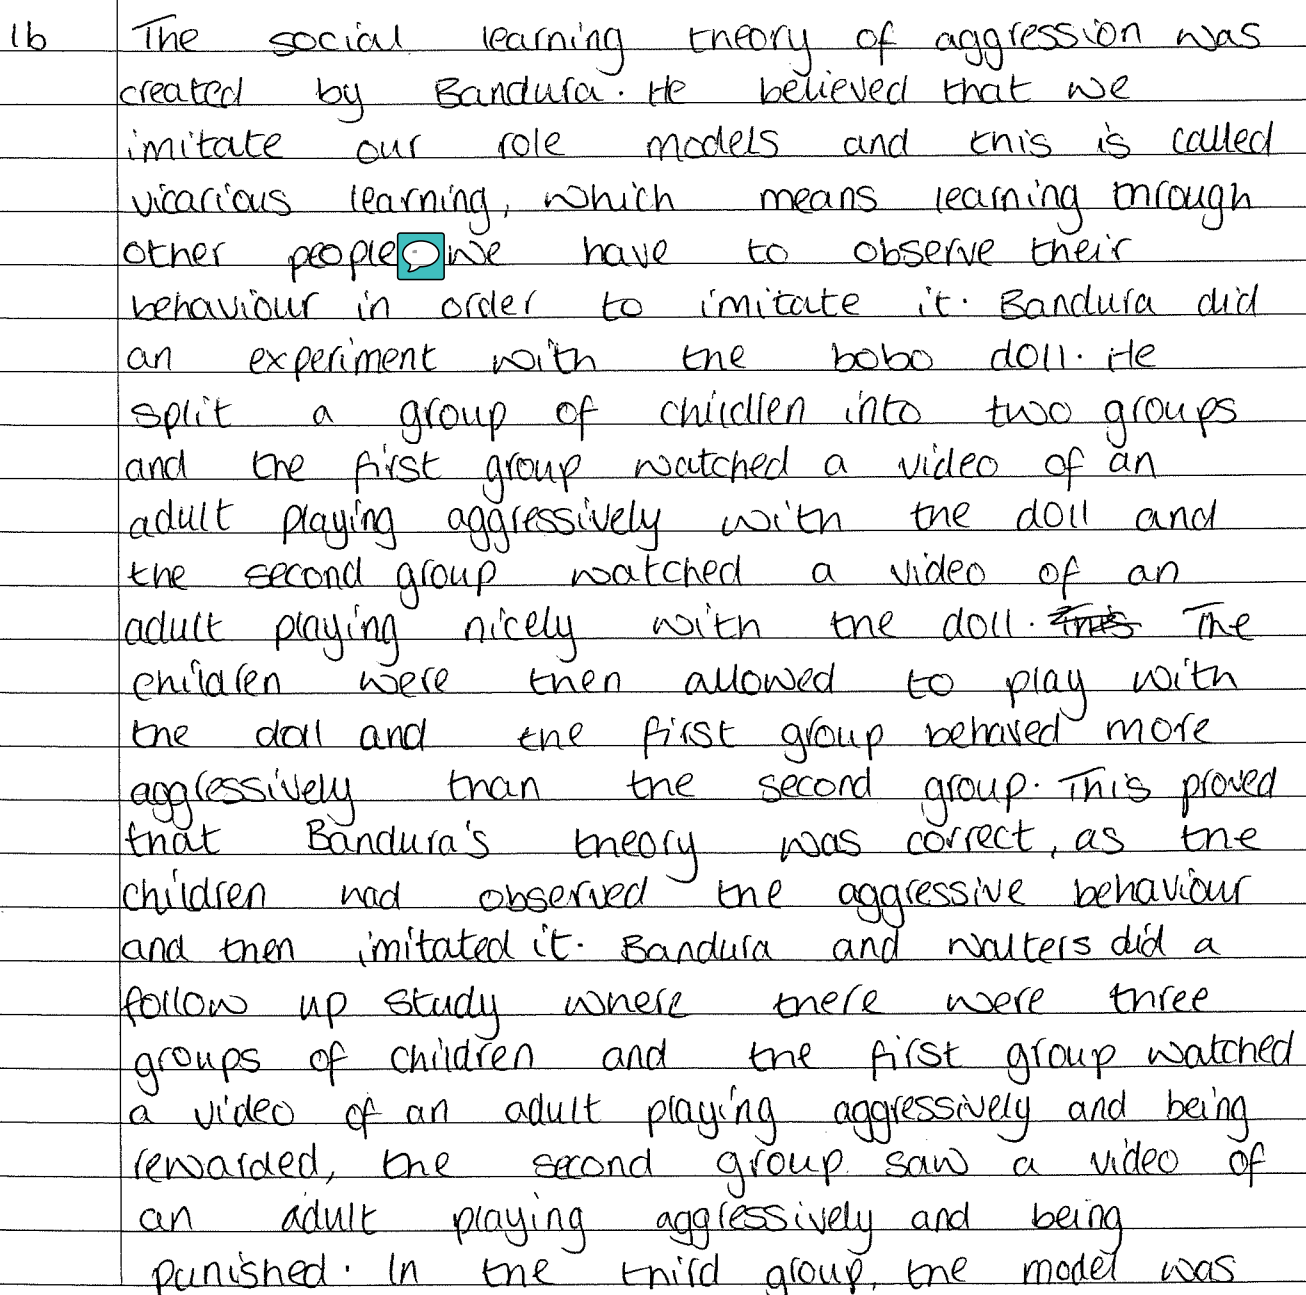 1b The social learning theory of aggression was
created by Bandura. He believed that we
imitate our role models and this is called
vicarious learning, which means learning through
other people we have to observe their
behaviour in order to imitate it. Bandura did
an experiment with the bobo doll. He
split a group of children into two groups
and the first group watched a video of an
adult playing aggressively with the doll and
the second group watched a video of an
adult playing nicely with the doll. This The
children were then allowed to play with
the doll and the first group behaved more
aggressively than the second group. This proved
that Bandura's theory was correct, as the
children had observed the aggressive behaviour
and then imitated it. Bandura and Walters did a
follow up study where there were three
groups of children and the first group watched
a video of an adult playing aggressively and being
rewarded, the second group saw a video of
an adult playing aggressively and being
punished. In the third group, the model was